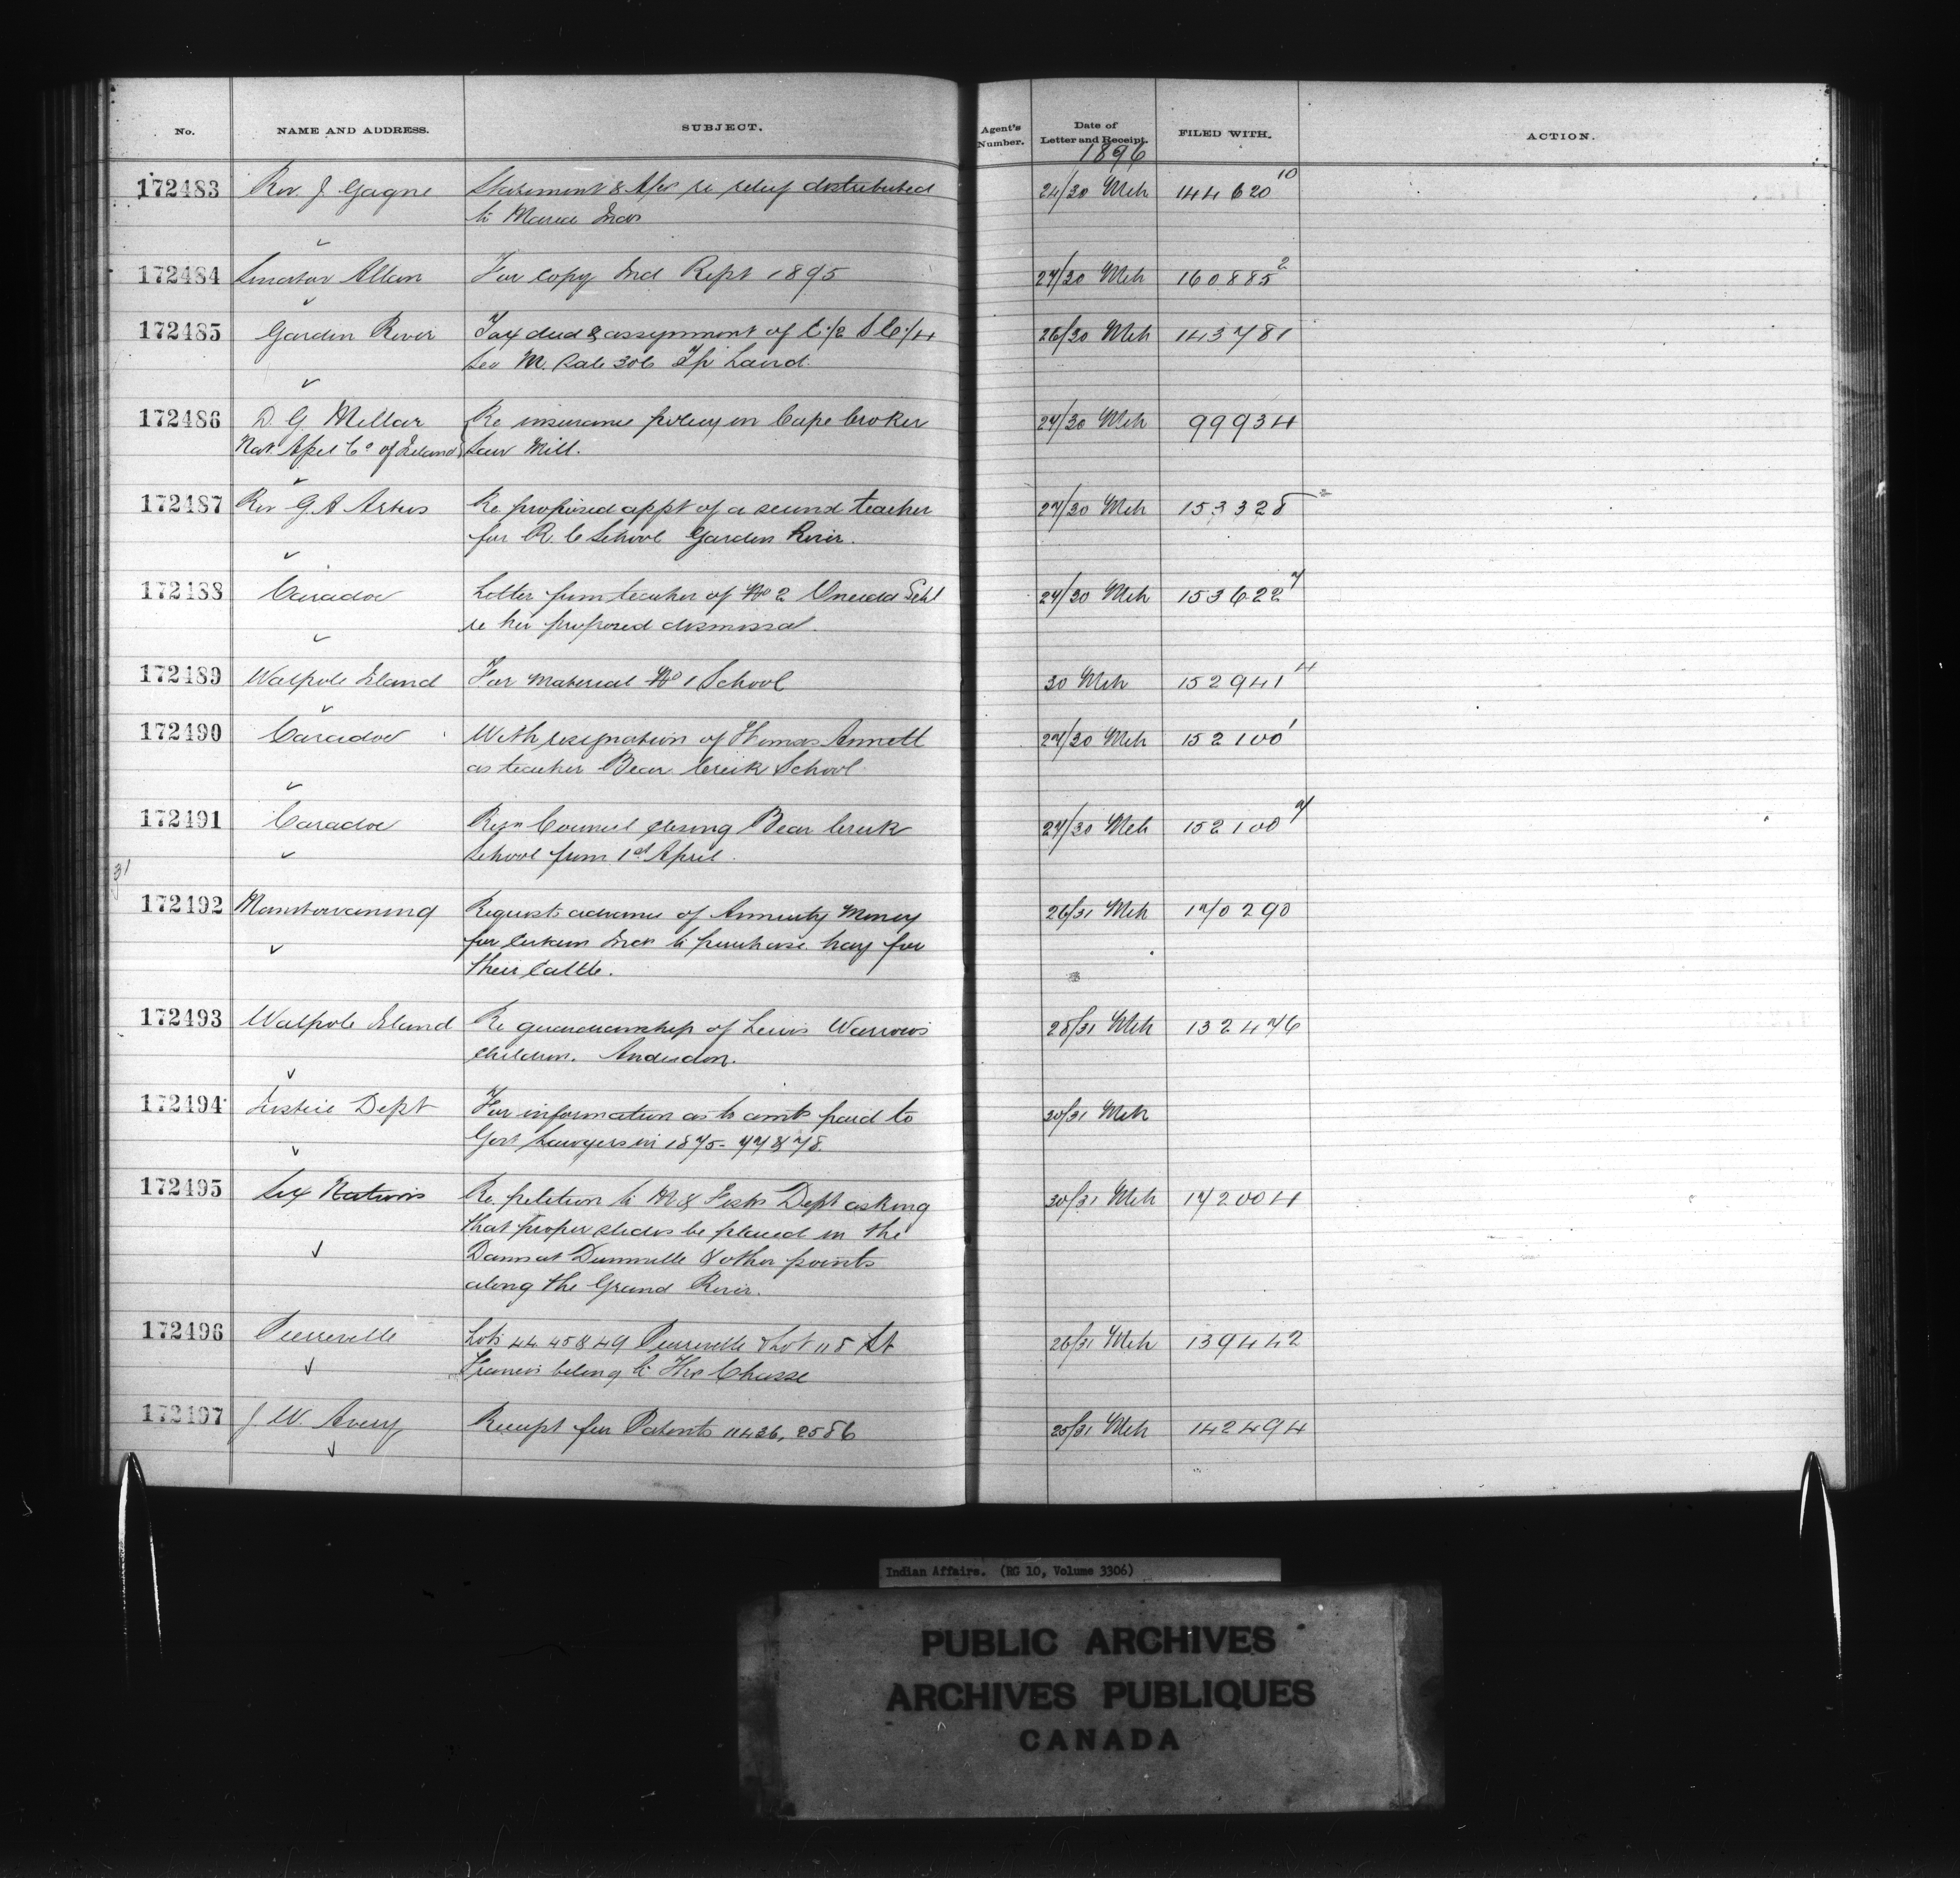 No. NAME AND ADDRESS. SUBJECT. Agent's Number. Date of Letter and Receipt. FILED WITH. ACTION.
1896
172483 Rev. J Gagne Statement & re relief distributed 24/30 Mch 144620 10
to Maria Inds
172484 Senator Allan For copy Ind Rept 1895 27/30 Mch 160885 2
172485 Garden River Tax deed & assignment of E 1/2 S E 1/4 26/30 Mch 143781
Sec M. Sale 306 Tp Laird.
172486 D. G Mellar Re insurance policy on Cape Croker 27/30 Mch 99934
Nat. Co of Ireland Saw Mill.
172487 Rev G. A Artus Re proposed appt of a second teacher 27/30 Mch 153328
for R. C School Garden River.
172488 Caradoc Letter from teacher of No 2 Oneida Schl 27/30 Mch 153622 7
re her proposed dismissal.
172489 Walpole Island For material No 1 School 30 Mch 152941 4
172490 Caradoc With resignation of Thomas Annett 27/30 Mch 152100 1
as teacher Bear Creek School.
172491 Caradoc Resn Council closing Bear Creek 27/30 Mch 152100 2
School from 1st April.
31
172492 Manitowaning Requests advance of Annuity Money 26/31 Mch 170290
for certain Inds to purchase hay for
their Cattle.
172493 Walpole Island Re guardianship of Lewis Warrow's 28/31 Mch 132476
children. Anderdon.
172494 Justice Dept For information as to amts paid to 30/31 Mch
Govt Lawyers in 1875-77 & 78.
172495 Six Nations Re petition to M & Fish's Dept asking 30/31 Mch 172004
that proper slides be placed in the
Dams at Dunnville & other points
along the Grand River.
172496 Pierreville Lots 44 45 & 49 Pierreville & Lot 118 St 26/31 Mch 139442
Francis belong to Thos Chasse
172497 J. W. Avery Receipt for Patents 11436, 2586 25/31 Mch 142494
Indian Affairs. (RG 10, Volume 3306)
PUBLIC ARCHIVES
ARCHIVES PUBLIQUES
CANADA